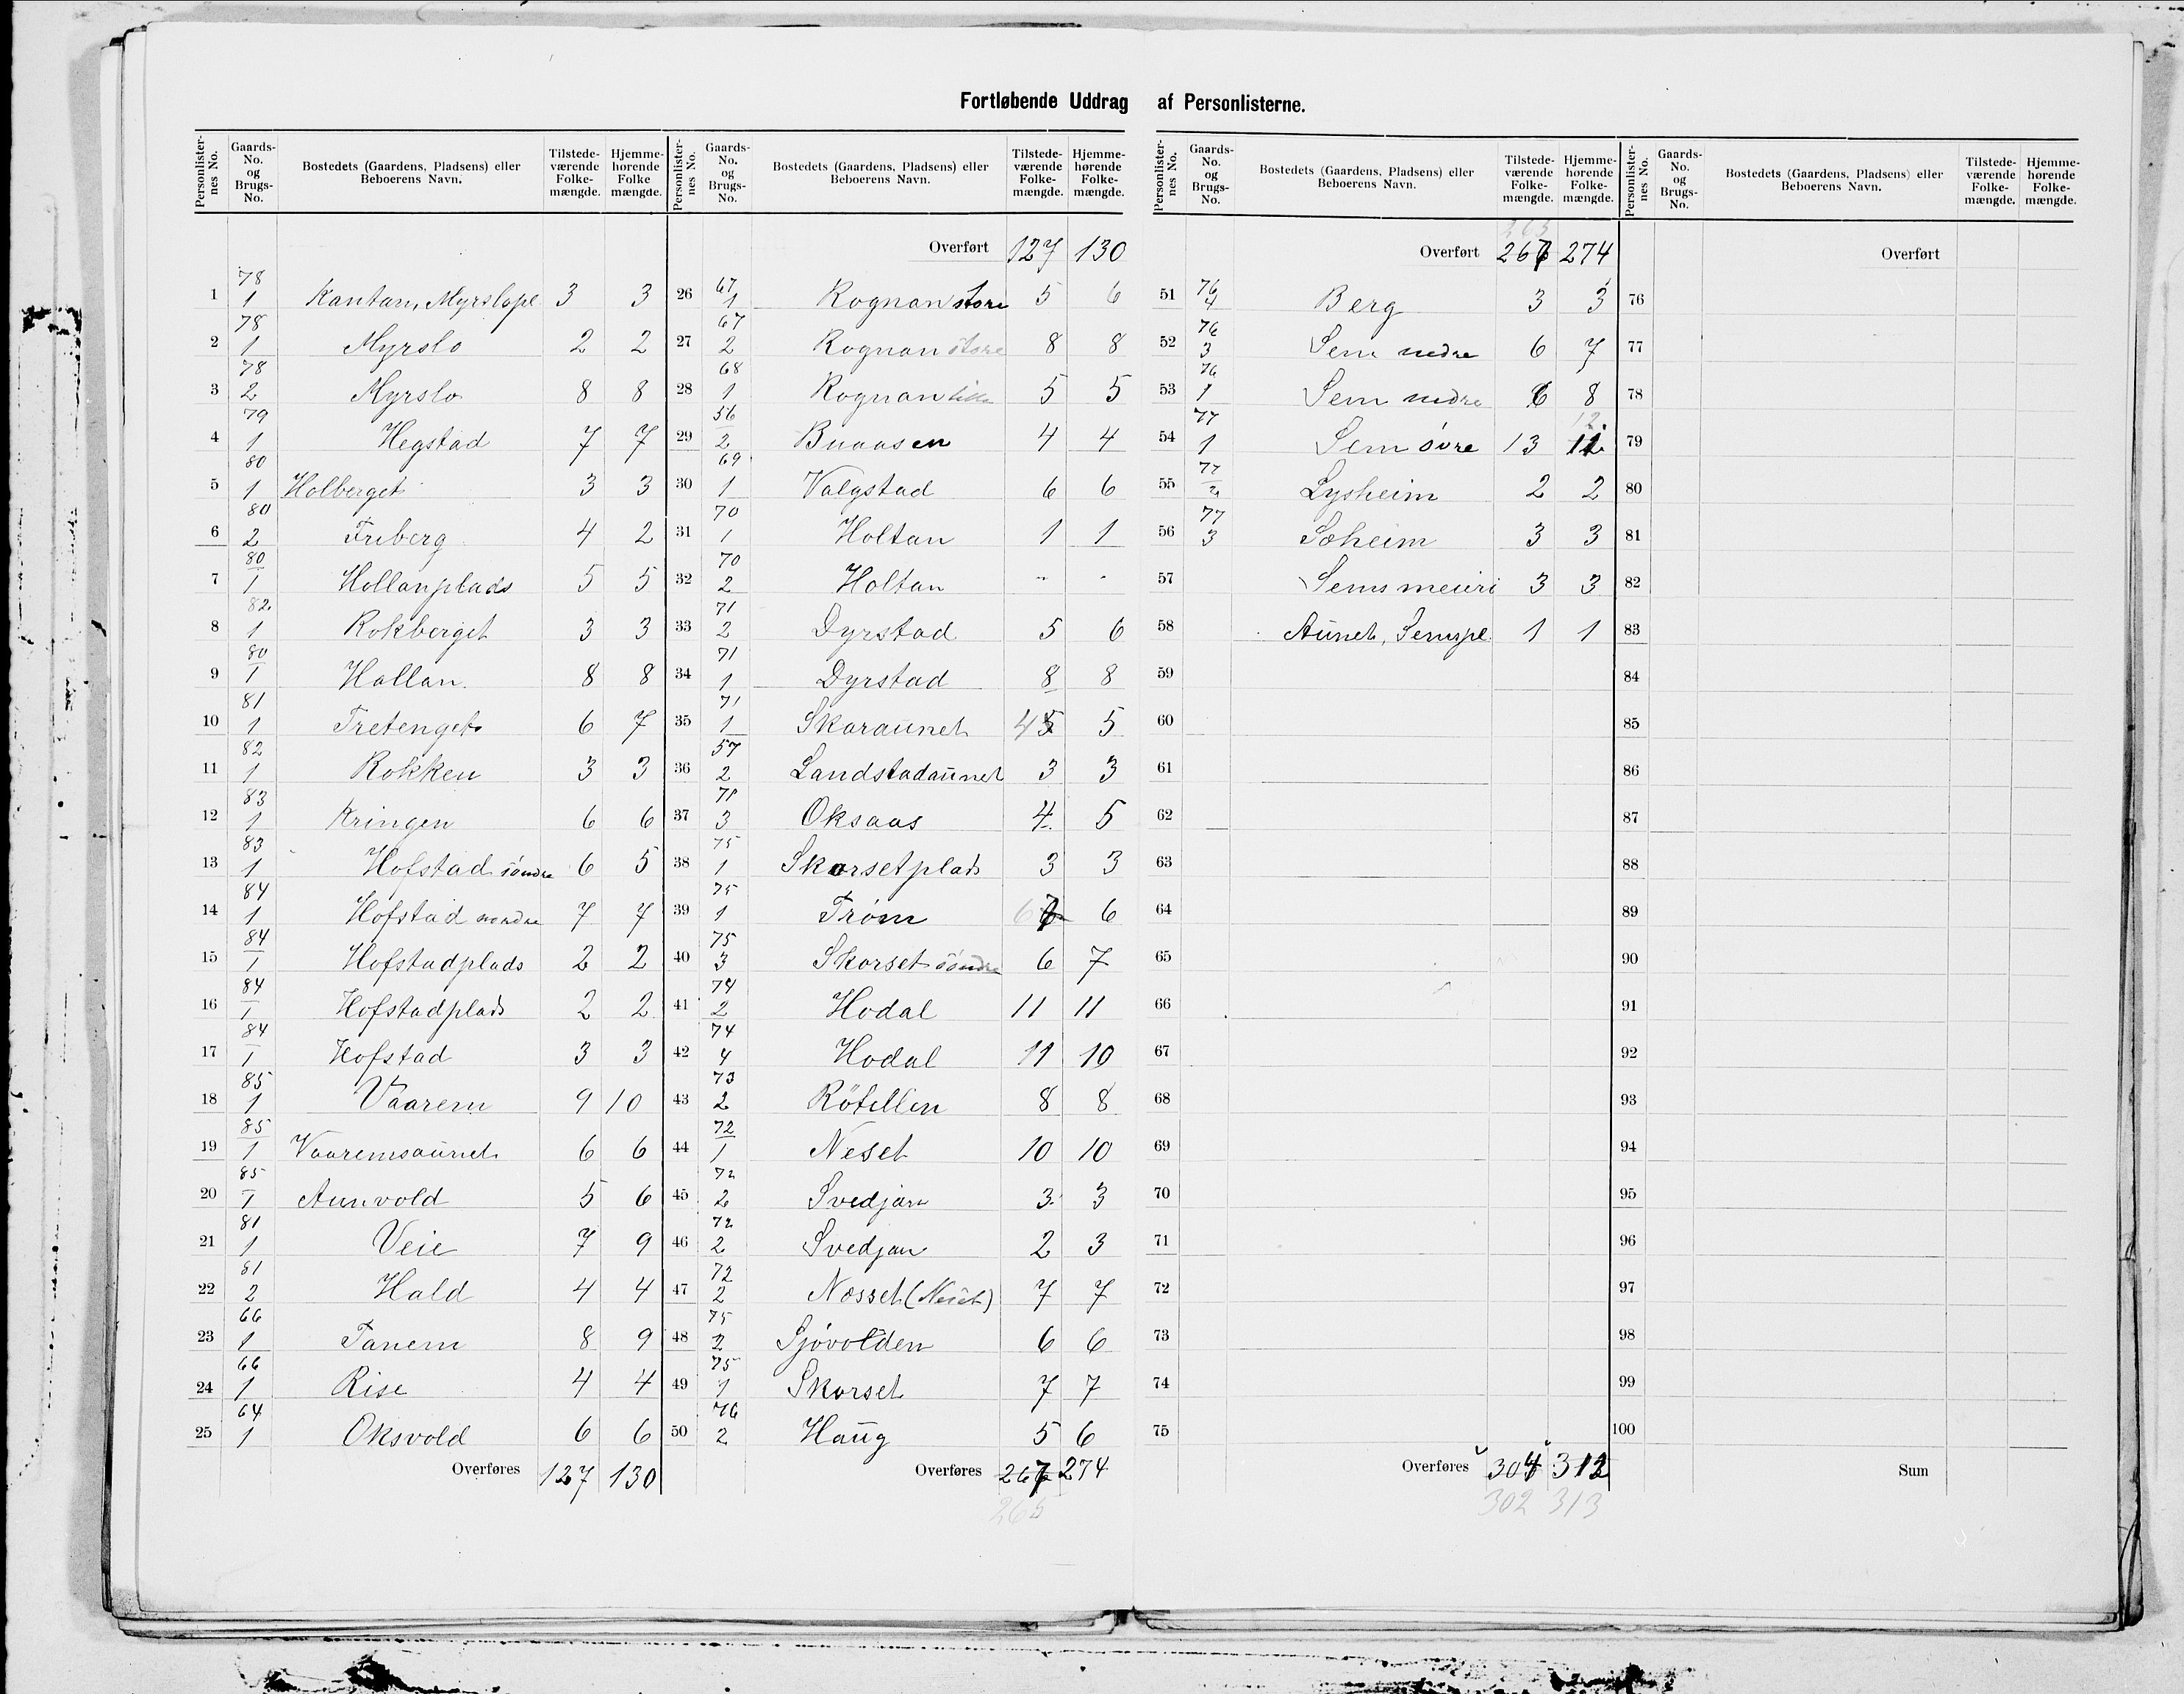 Fortløbende Uddrag af Personlisterne.
Personlister-nes No. | Gaards-No. og Brugs-No. | Bostedets (Gaardens, Pladsens) eller Beboerens Navn. | Tilstede-værende Folke-mængde. | Hjemme-hørende Folke mængde.
1 78/1 Kantan, Myrslopl 3 3
2 78/1 Myrslo 2 2
3 78/2 Myrslo 8 8
4 79/1 Hegstad 7 7
5 80/1 Holberget 3 3
6 80/2 Friberg 4 2
7 80/1 Hollanplads 5 5
8 82/1 Rokberget 3 3
9 80/1 Hallan 8 8
10 81/1 Tretenget 6 7
11 82/1 Rokken 3 3
12 83/1 Kringen 6 6
13 83/1 Hofstad söndre 6 5
14 84/1 Hofstad nordre 7 7
15 84/1 Hofstadplads 2 2
16 84/1 Hofstadplads 2 2
17 84/1 Hofstad 3 3
18 85/1 Vaarem 9 10
19 85/1 Vaaremsaunet 6 6
20 85/1 Aunvold 5 6
21 81/1 Veie 7 9
22 81/2 Hald 4 4
23 66/1 Tanem 8 9
24 66/1 Rise 4 4
25 64/1 Oksvold 6 6
Overføres 127 130
Personlister-nes No. | Gaards-No. og Brugs-No. | Bostedets (Gaardens, Pladsens) eller Beboerens Navn. | Tilstede-værende Folke-mængde. | Hjemme-hørende Folke-mængde.
Overført 127 130
26 67/1 Rognan store 5 6
27 67/2 Rognan store 8 8
28 68/1 Rognan lille 5 5
29 56/2 Buaasen 4 4
30 69/1 Valgstad 6 6
31 70/1 Holtan 1 1
32 70/2 Holtan - -
33 71/2 Dyrstad 5 6
34 71/1 Dyrstad 8 8
35 71/1 Skaraunet 4 5 5
36 57/2 Landstadaunet 3 3
37 71/3 Oksaas 4 5
38 75/1 Skorsetplads 3 3
39 75/1 Tröm 6 6
40 75/3 Skorset söndre 6 7
41 74/2 Hodal 11 11
42 74/4 Hodal 11 10
43 73/2 Rötillen 8 8
44 72/1 Neset 10 10
45 72/2 Svedjan 3 3
46 72/2 Svedjan 2 3
47 72/2 Nesset (Neset) 7 7
48 75/2 Sjövolden 6 6
49 75/1 Skorset 7 7
50 76/2 Haug 5 6
Overføres 267 274
265
Personlister-nes No. | Gaards-No. og Brugs-No. | Bostedets (Gaardens, Pladsens) eller Beboerens Navn. | Tilstede-værende Folke-mængde. | Hjemme-hørende Folke-mængde.
265
Overført 267 274
51 76/4 Berg 3 3
52 76/3 Sem nedre 6 7
53 76/1 Sem nedre 6 8
12
54 77/1 Sem övre 13 11
55 77/2 Lysheim 2 2
56 77/3 Soheim 3 3
57 Sems meieri 3 3
58 Aunet, Sempl. 1 1
59
60
61
62
63
64
65
66
67
68
69
70
71
72
73
74
75
Overføres 304 312
302 313
Personlister-nes No. | Gaards-No. og Brugs-No. | Bostedets (Gaardens, Pladsens) eller Beboerens Navn. | Tilstede-værende Folke-mængde. | Hjemme-hørende Folke-mængde.
Overført
76
77
78
79
80
81
82
83
84
85
86
87
88
89
90
91
92
93
94
95
96
97
98
99
100
Sum